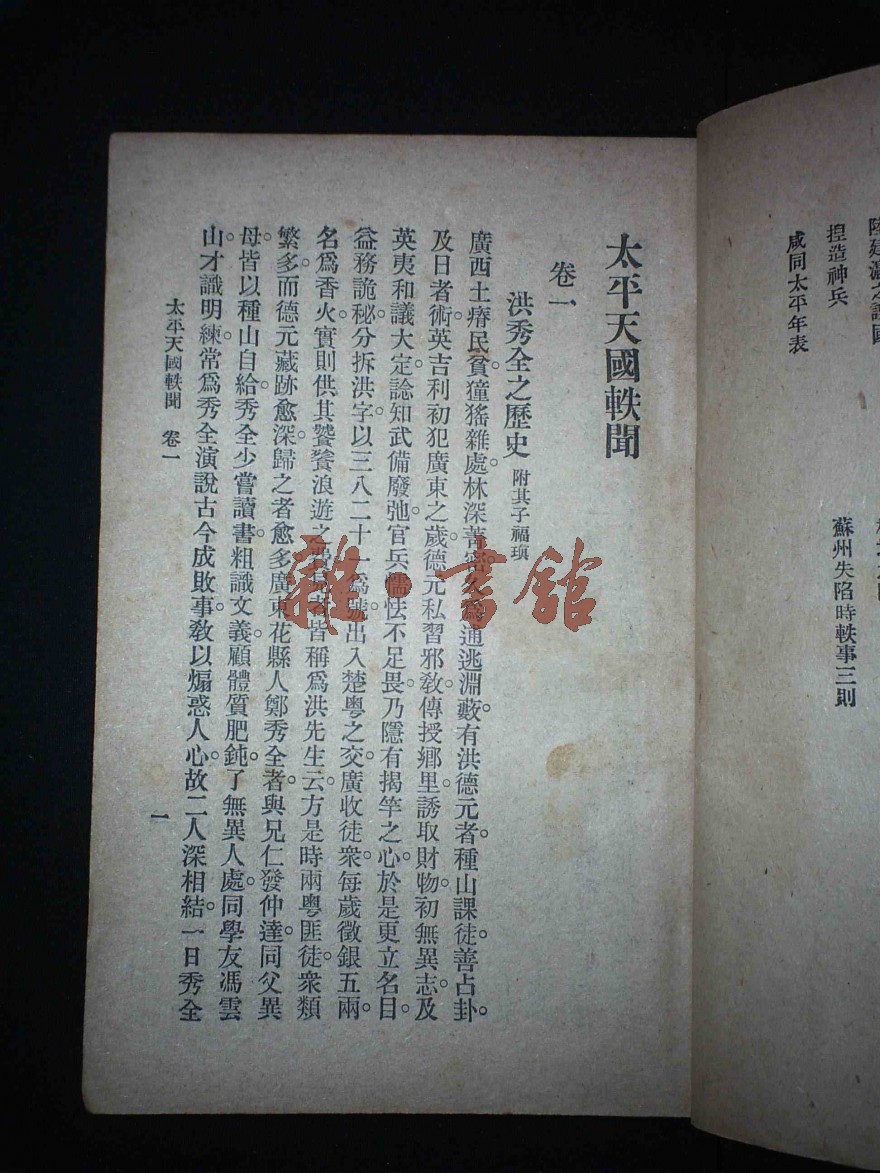 捏造神兵
咸同太平年表
蘇州失陷時軼事三則
太平天國軼聞
卷一
洪秀全之歷史 附其子福瑱
廣西土瘠民貧。獞猺雜處。林深菁密。久爲逋逃淵藪。有洪德元者。種山課徒。善占卦。
及日者術。英吉利初犯廣東之歲。德元私習邪敎。傳授鄕里。誘取財物。初無異志。及
英夷和議大定。諗知武備廢弛。官兵懦怯不足畏。乃隱有揭竿之心。於是更立名目。
益務詭秘。分拆洪字。以三八二十一爲號。出入楚粵之交。廣收徒衆。每歲徵銀五兩。
名爲香火。實則供其饕餮浪遊之費。見者皆稱爲洪先生云。方是時兩粵匪徒。衆類
繁多。而德元藏跡愈深。歸之者愈多。廣東花縣人鄭秀全者。與兄仁發仲達。同父異
母。皆以種山自給。秀全少嘗讀書。粗識文義。顧體質肥鈍。了無異人處。同學友馮雲
山。才識明練。常爲秀全演說古今成敗事。敎以煽惑人心。故二人深相結。一日秀全
太平天國軼聞 卷一
一
雜·書館